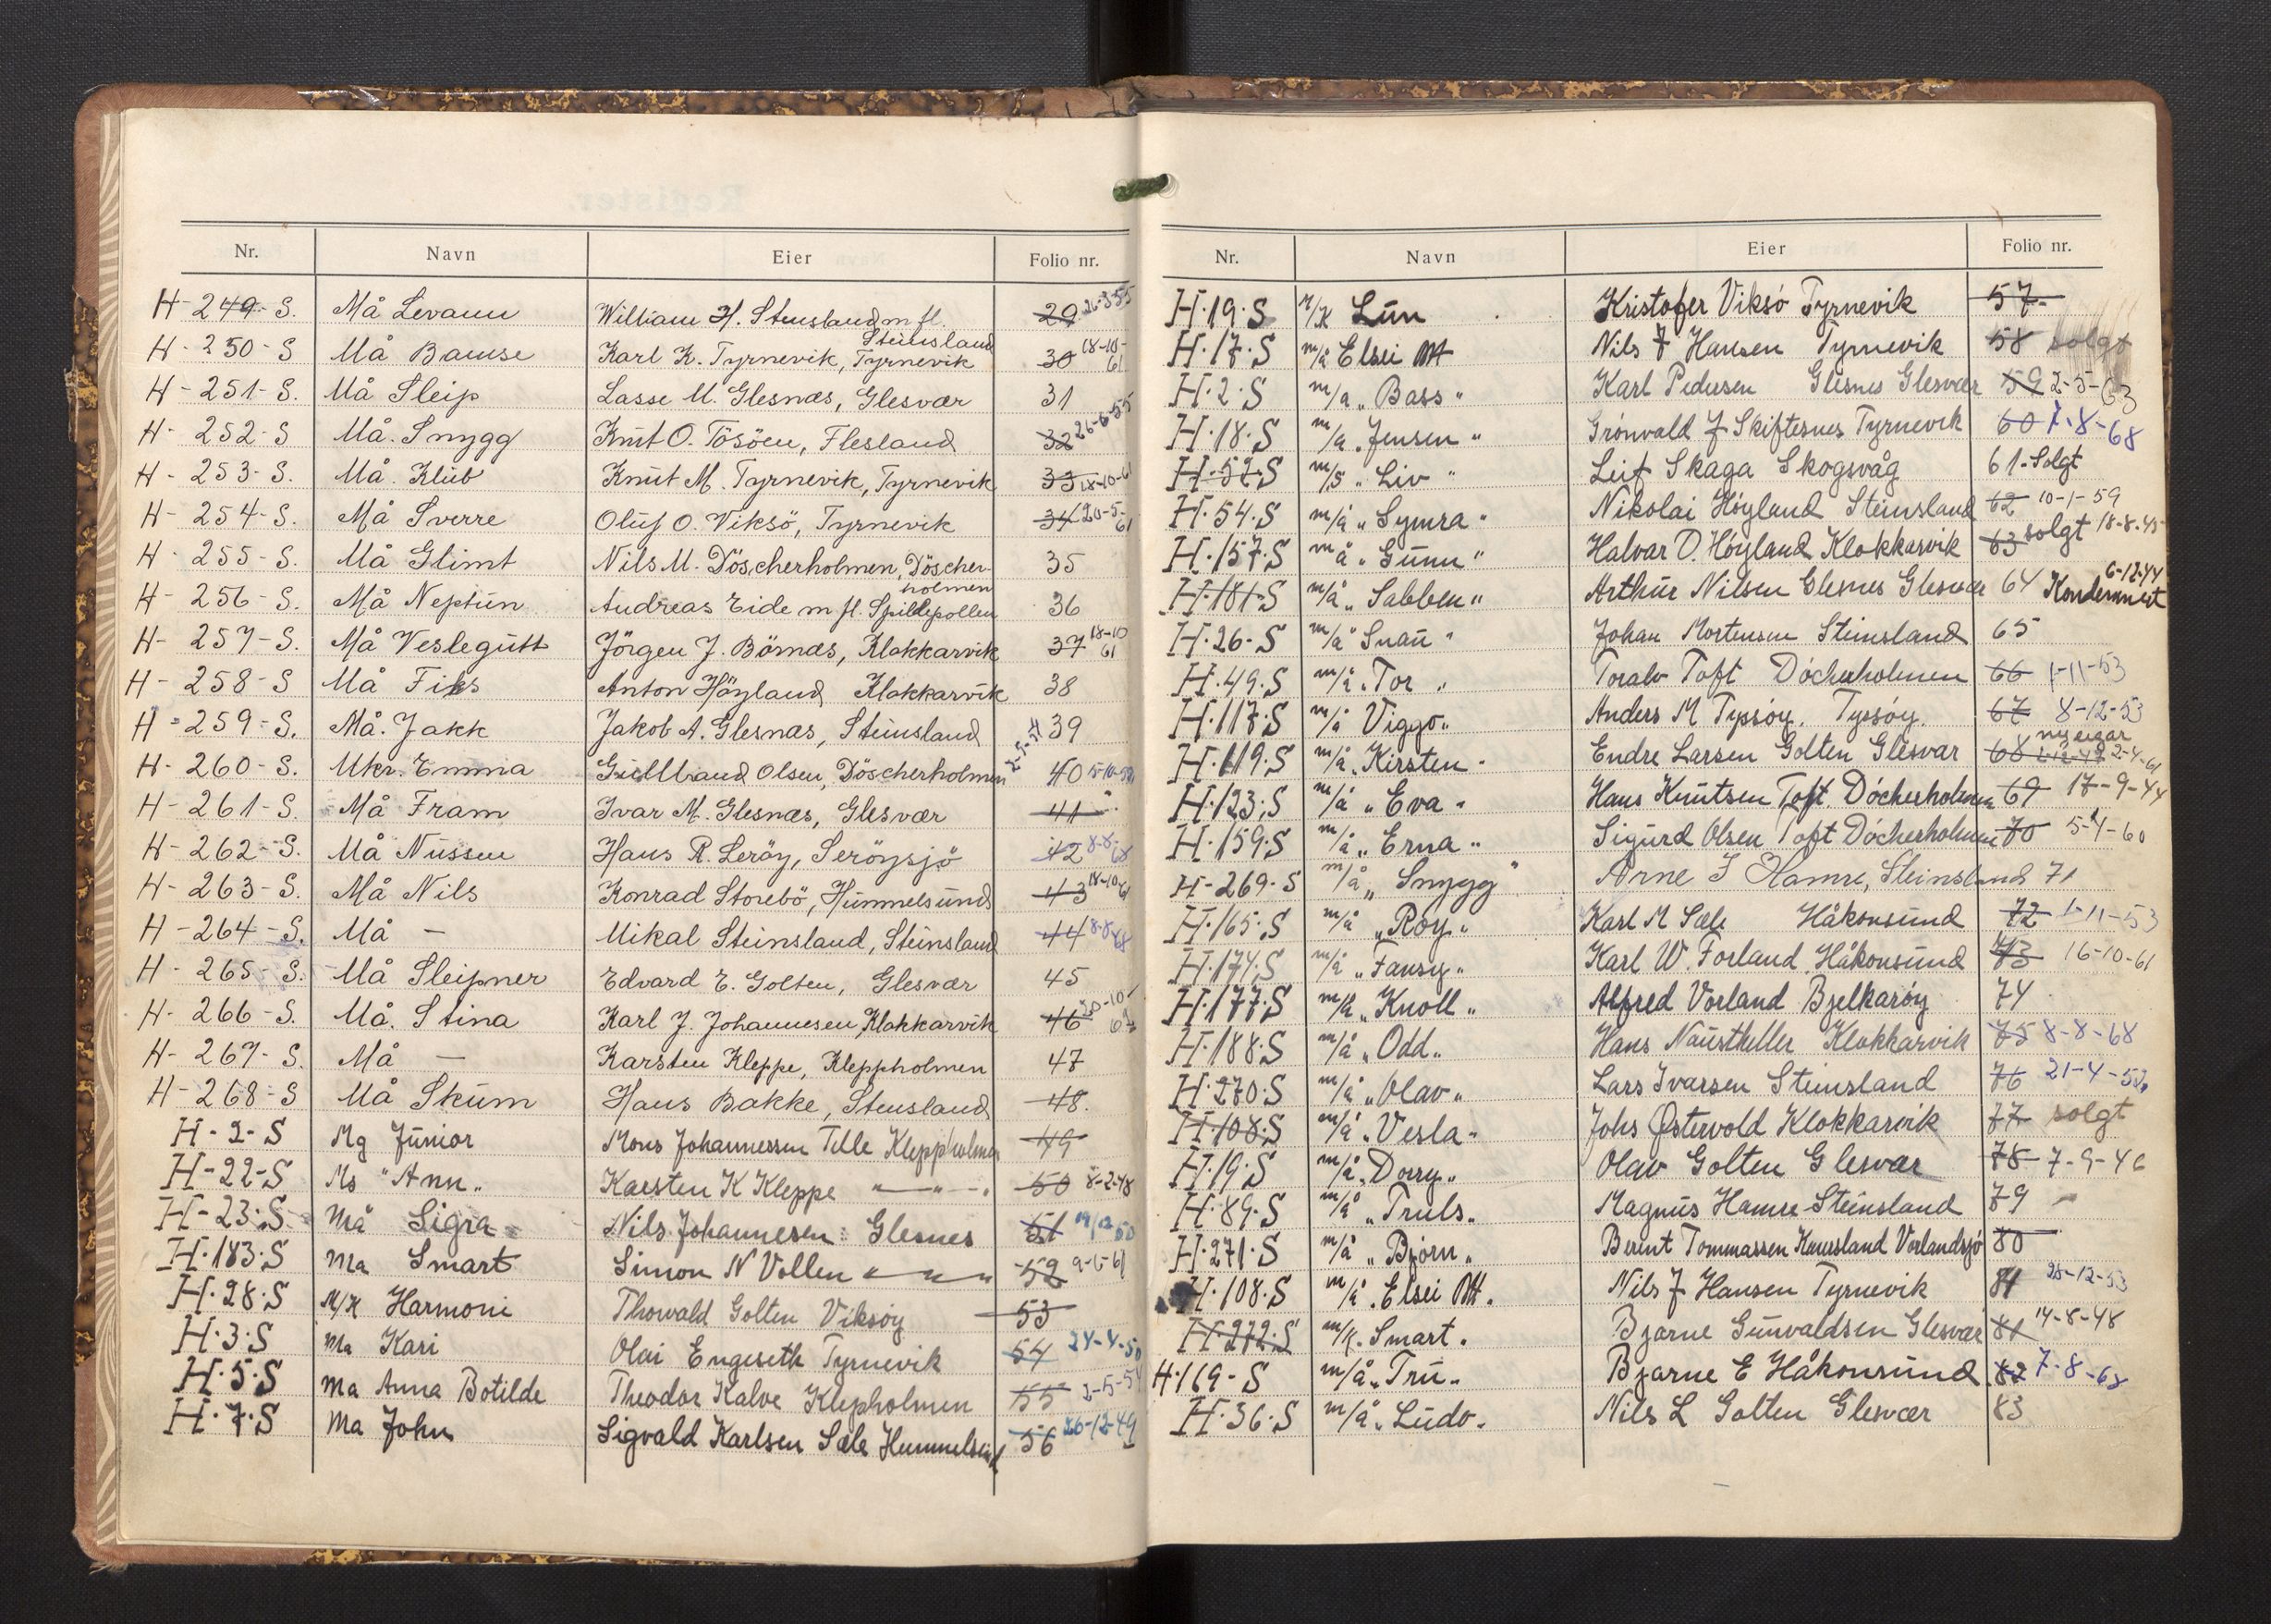 Nr. Navn Eier Folio nr.
H-249-S. Må Levann William H. Stensland m fl. Steinsland 29 26-3-55
H-250-S Må Bamse Karl K. Tyrnevik, Tyrnevik 30 18-10-61
H-251-S. Må Sleip Lasse M. Glesnæs, Glesvær 31
H-252-S Må. Snygg Knut O. Tösöen, Flesland 32 26-6-55
H-253-S. Må. Klub Knut M. Tyrnevik, Tyrnevik 33 18-10-61
H-254-S. Må Sverre Oluf O. Viksö, Tyrnevik 34 20-5-61
H-255-S. Må Glimt Nils M. Döscherholmen, Döscherholmen 35
H-256-S. Må Neptun Andreas Eide m fl. Spildepollen 36
H-257-S. Må Veslegutt Jörgen J. Börnæs, Klokkarvik 37 18-10 61
H-258-S Må Fiks Anton Höyland Klokkarvik 38
H-259-S. Må. Jakk Jakob A. Glesnæs, Steinsland 39
H-260-S. Mkr. Emma Gullbrand Olsen, Döscherholmen 40
H-261-S. Må Fram Ivar M. Glesnæs, Glesvær 41
H-262-S. Må Nussen Hans R. Leröy, Seröysjö 42 8-8-68
H-263-S. Må Nils Konrad Storebö, Hummelsund 43 18-10 61
H-264-S. Må – Mikal Steinsland, Steinsland 44 8-8-68
H-265-S. Må Sleipner Edvard E. Golten, Glesvær 45
H-266-S. Må. Stina Karl J. Johannesen, Klokkarvik 46
H-267-S. Må – Karsten Kleppe, Kleppholmen 47
H-268-S Må Skum Hans Bakke, Stensland 48.
H-2-S Mg Junior Mons Johannessen Telle Kleppholmen 49
H-22-S Ms "Ann" Karsten K Kleppe —"— 50 8-2-48
H-23-S Må Sigra Nils Johannesen Glesnes 51 19/12 50
H.183.S Ma Smart Simon N Vollen " " " 52
H.28.S M/K Harmoni Thorvald Golten Viksøy 53
H.3.S Ma Kari Olai Engeseth Tyrnevik 54 24-4-50
H.5.S Ma Anna Botilde Theodor Kalve Klepholmen 55 2-5-54
H.7.S Ma John Sigvald Karlsen Sæle Hummelsund 56 20-12-49
Nr. Navn Eier Folio nr.
H.19.S M/K Lun Kristofer Viksø Tyrnevik 57
H.17.S m/å Elsei Nils J Hansen Tyrnevik 58 solgt
H.2.S m/a "Bass" Karl Pedersen Glesnes Glesvær 59 2-5-63
H.18.S m/a "Jensen" Grönvald J Skiftesnes Tyrnevik 60 7-8-68
H.52.S m/s "Liv" Leif Skaga Skogsvåg 61 Solgt
H.54.S m/å "Symra" Nikolai Høyland Steinsland 62 10-1-59
H.157.S m/å "Gunn" Halvar O. Høyland Klokkarvik 63 solgt 18-8-45
H.181.S m/å "Sabben" Arthur Nilsen Glesnes Glesvær 64 Kondemnert 6-12-44
H.26.S m/å Snau Johan Mortensen Steinsland 65
H.49.S m/å "Tor" Toralv Toft Döcherholmen 66 1-11-53
H.117.S m/å Viggo Anders M Tyssøy. Tyssøy. 67 8-12-53
H.119.S m/å Kirsten Endre Larsen Golten Glesvær 68 ny eigar 2-4-61
H.123.S m/å "Eva" Hans Knutsen Toft Döcherholmen 69 17-9-44
H.159.S m/å "Erna" Sigurd Olsen Toft Döcherholmen 70 5-4-60
H-269-S m/å "Snygg" Arne J Hamre, Steinsland 71
H.165.S m/å "Roy" Karl M Sæle Håkonsund 72 1-11-53
H.174.S m/å "Fansy" Karl W. Forland Håkonsund 73 16-10-61
H.177.S m/k "Knoll" Alfred Vorland Bjelkarøy 74
H.188.S m/å "Odd" Hans Naustheller Klokkarvik 75 8-8-68
H.270.S m/å "Olav" Lars Ivarsen Steinsland 76 21-4-53
H.108.S m/å "Vesla" Johs Østervold Klokkarvik 77 solgt
H.19.S m/å "Dorry" Olav Golten Glesvær 78 7-9-46
H.89.S m/å "Truls" Magnus Hamre Steinsland 79
H.271.S m/å "Bjørn" Berint Tommassen Kauersland Vorlandsjø 80
H.108.S m/å Elsei Nils J Hansen Tyrnevik 81 28-12-53
H.272.S m/k. Smart. Bjarne Gunvaldsen Glesvær 81 14-8-48
H.169-S m/å "Tru" Bjarne E Håkonsund 82 7-8-68
H.36.S m/å "Ludo" Nils L Golten Glesvær 83